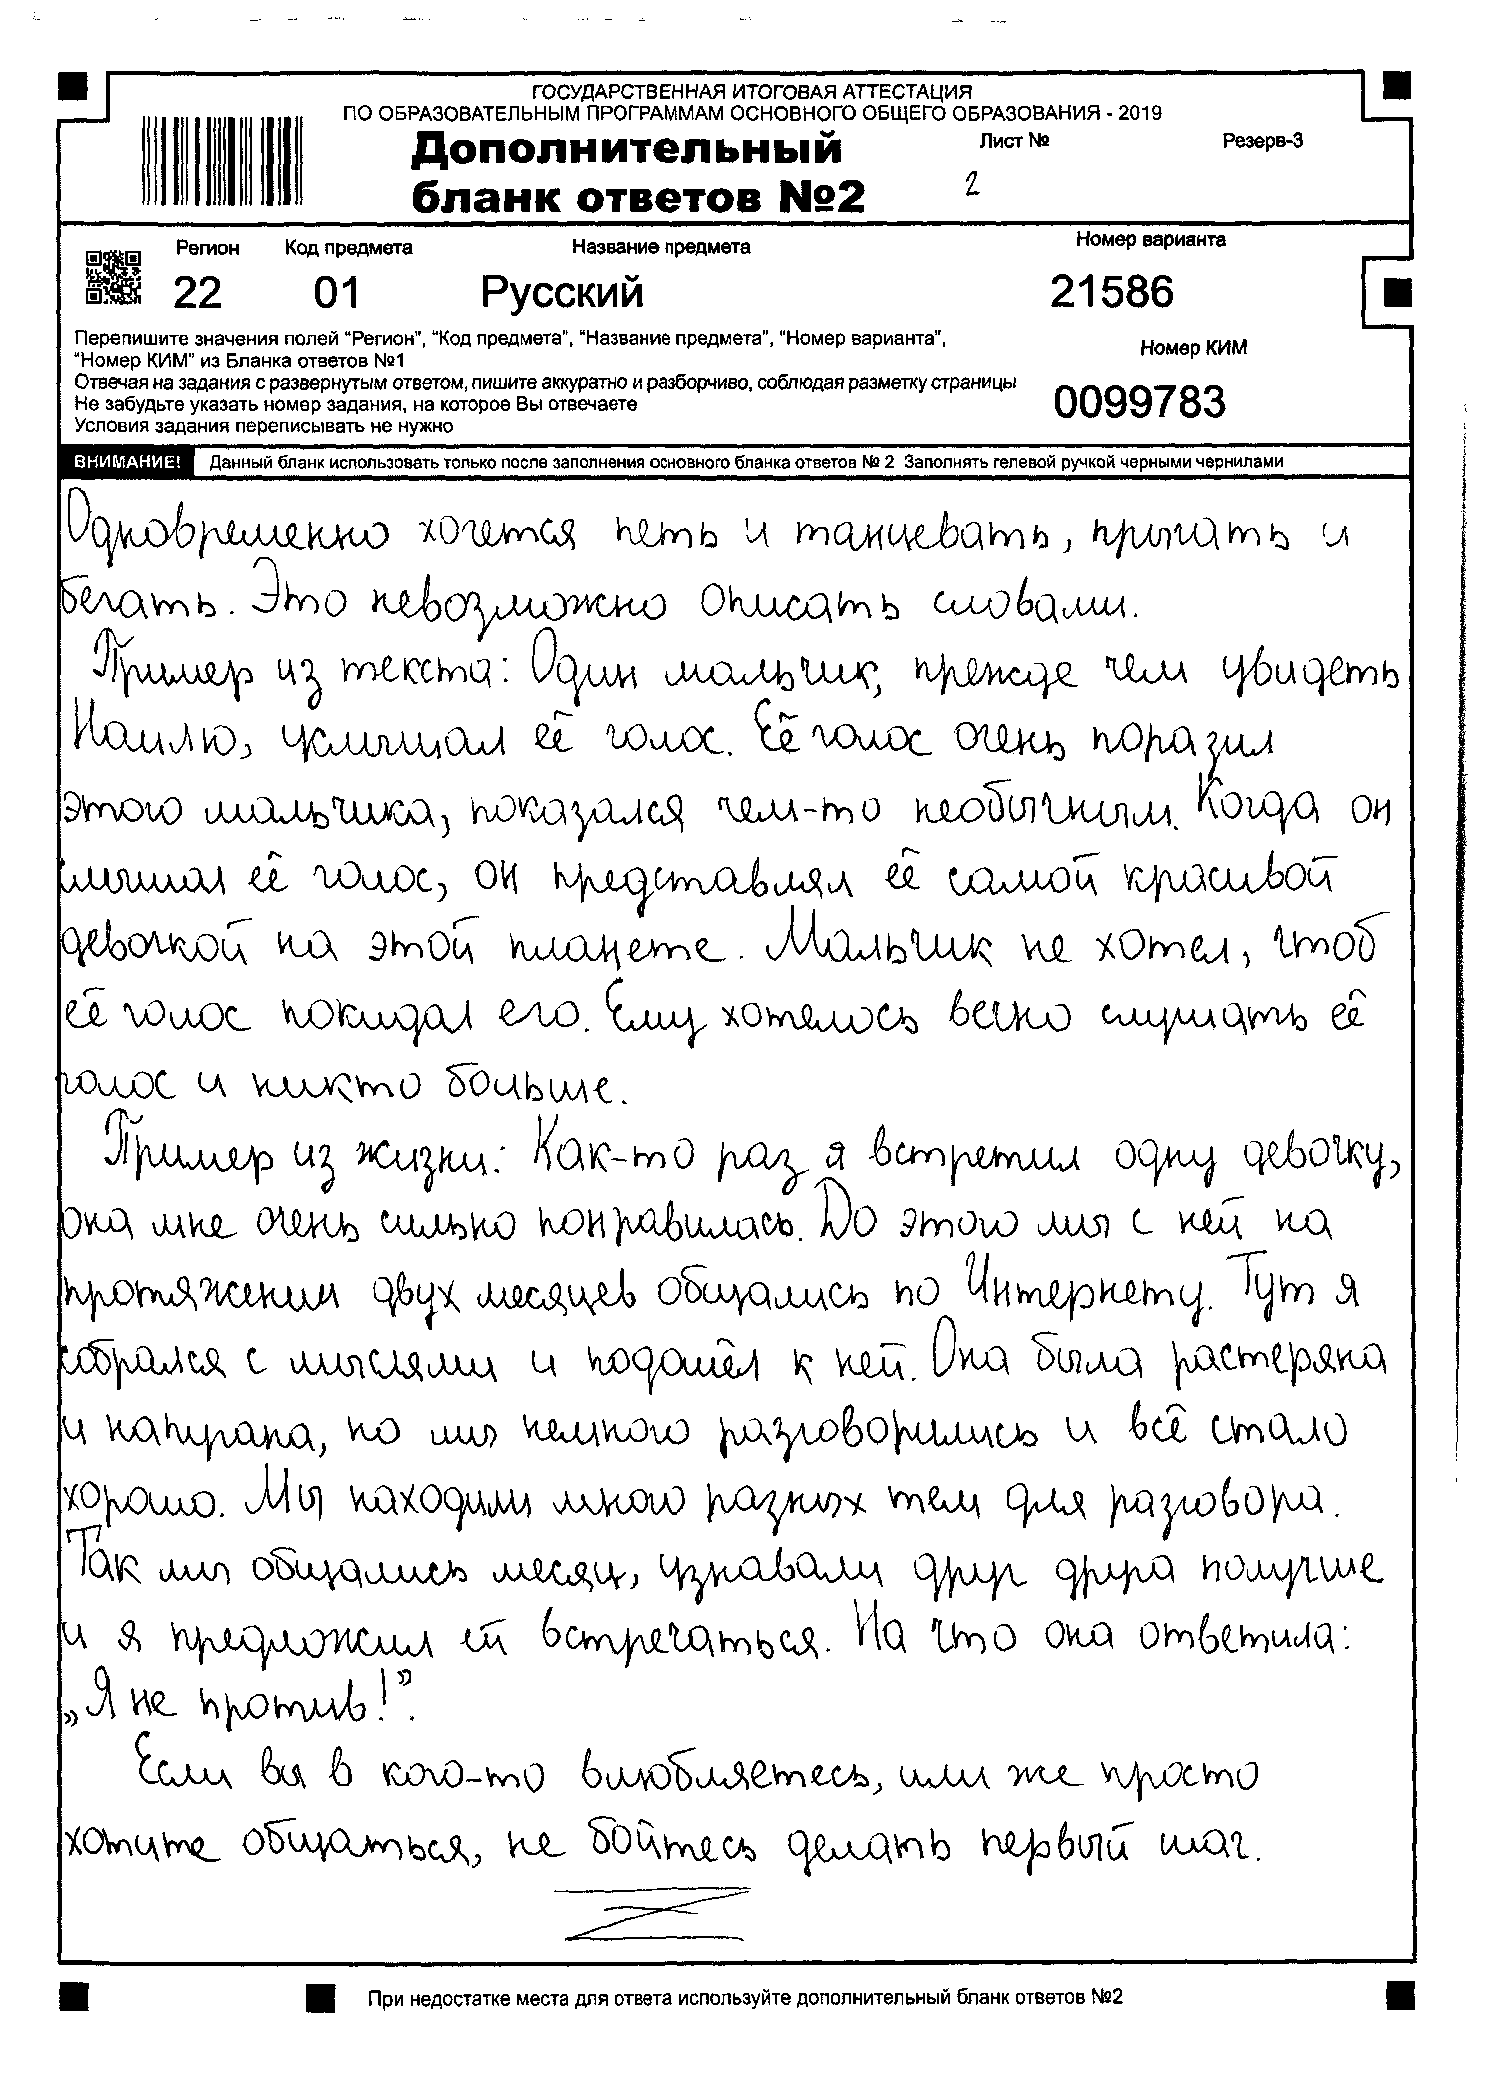 ГОСУДАРСТВЕННАЯ ИТОГОВАЯ АТТЕСТАЦИЯ
ПО ОБРАЗОВАТЕЛЬНЫМ ПРОГРАММАМ ОСНОВНОГО ОБЩЕГО ОБРАЗОВАНИЯ - 2019
Дополнительный
бланк ответов №2
Лист №
Резерв-3
2
Регион
Код предмета
Название предмета
Номер варианта
22
01
Русский
21586
Перепишите значения полей "Регион", "Код предмета", "Название предмета", "Номер варианта",
"Номер КИМ" из Бланка ответов №1
Номер КИМ
Отвечая на задания с развернутым ответом, пишите аккуратно и разборчиво, соблюдая разметку страницы
Не забудьте указать номер задания, на которое Вы отвечаете
0099783
Условия задания переписывать не нужно
ВНИМАНИЕ! Данный бланк использовать только после заполнения основного бланка ответов № 2 Заполнять гелевой ручкой черными чернилами
Одновременно хочется петь и танцевать, прыгать и
бегать. Это невозможно описать словами.
Пример из текста: Один мальчик, прежде чем увидеть
Наилю, услышал её голос. Её голос очень поразил
этого мальчика, показался чем-то необычным. Когда он
слышал её голос, он представлял её самой красивой
девочкой на этой планете. Мальчик не хотел, чтоб
её голос покидал его. Ему хотелось вечно слушать её
голос и никто больше.
Пример из жизни: Как-то раз я встретил одну девочку,
она мне очень сильно понравилась. До этого мы с ней на
протяжении двух месяцев общались по Интернету. Тут я
собрался с мыслями и подошёл к ней. Она была растеряна
и напугана, но мы немного разговорились и всё стало
хорошо. Мы находили много разных тем для разговора.
Так мы общались месяц, узнавали друг друга получше
и я предложил ей встречаться. На что она ответила:
„Я не против!”.
Если вы в кого-то влюбляетесь, или же просто
хотите общаться, не бойтесь делать первый шаг.
При недостатке места для ответа используйте дополнительный бланк ответов №2